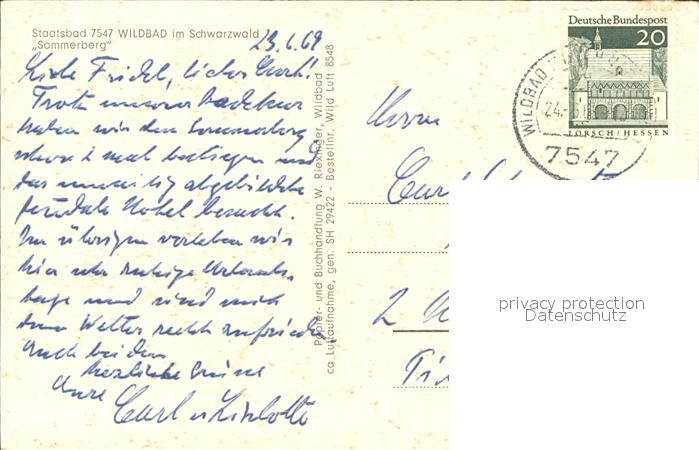 Staatsbad 7547 WILDBAD im Schwarzwald
„Sommerberg"
23.6.69
Liebe Friedel, lieber Curt!
Trotz unserer Badekur
haben wir den Sommerberg
schon 2 mal bestiegen und
das umseitig abgebildete
feudale Hotel besucht.
Im übrigen verleben wir
hier sehr ruhige Urlaubs-
tage und sind mit
dem Wetter recht zufrieden
Euch beiden
herzliche Grüsse
Eure
Curt u Liselotte
Papier- und Buchhandlung W. Riexinger, Wildbad
ca Luftaufnahme, gen. SH 29422 - Bestellnr. Wild Luft 8548
Deutsche Bundespost
20
LORSCH/HESSEN
WILDBAD
24.
7547
Herrn
Curt
2
privacy protection
Datenschutz